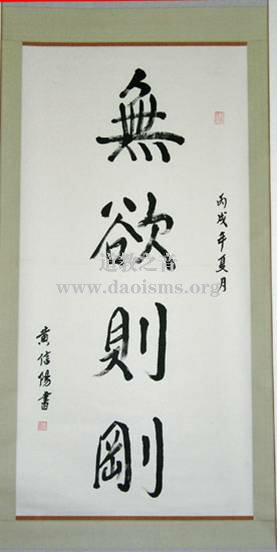 無欲則剛
丙戌年夏月
黄信陽書
道教之音
www.daoisms.org